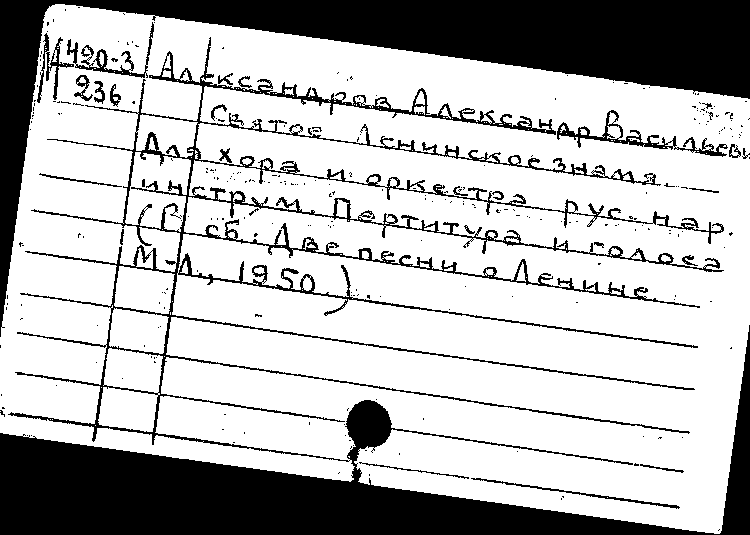 М 420-3
236.
Александров, Александр Васильеви
Святое Ленинское знамя.
Для хора и оркестра рус. нар.
инструм. Партитура и голоса
(В сб.: Две песни о Ленине
М-Л., 1950).